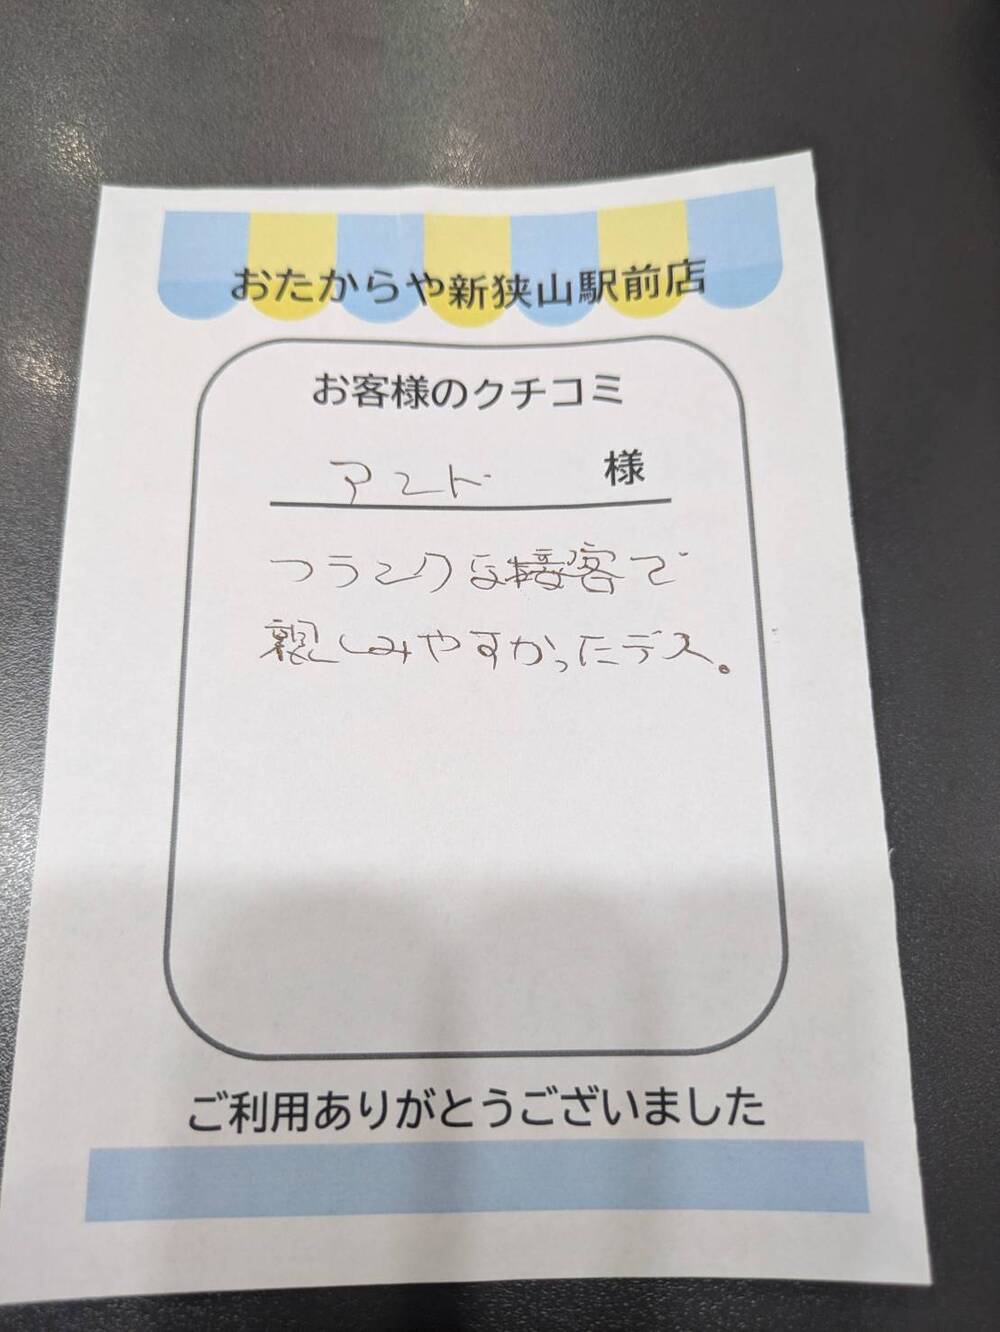 おたからや新狭山駅前店
お客様のクチコミ
アンド 様
フランクな接客で
親しみやすかったデス。
ご利用ありがとうございました